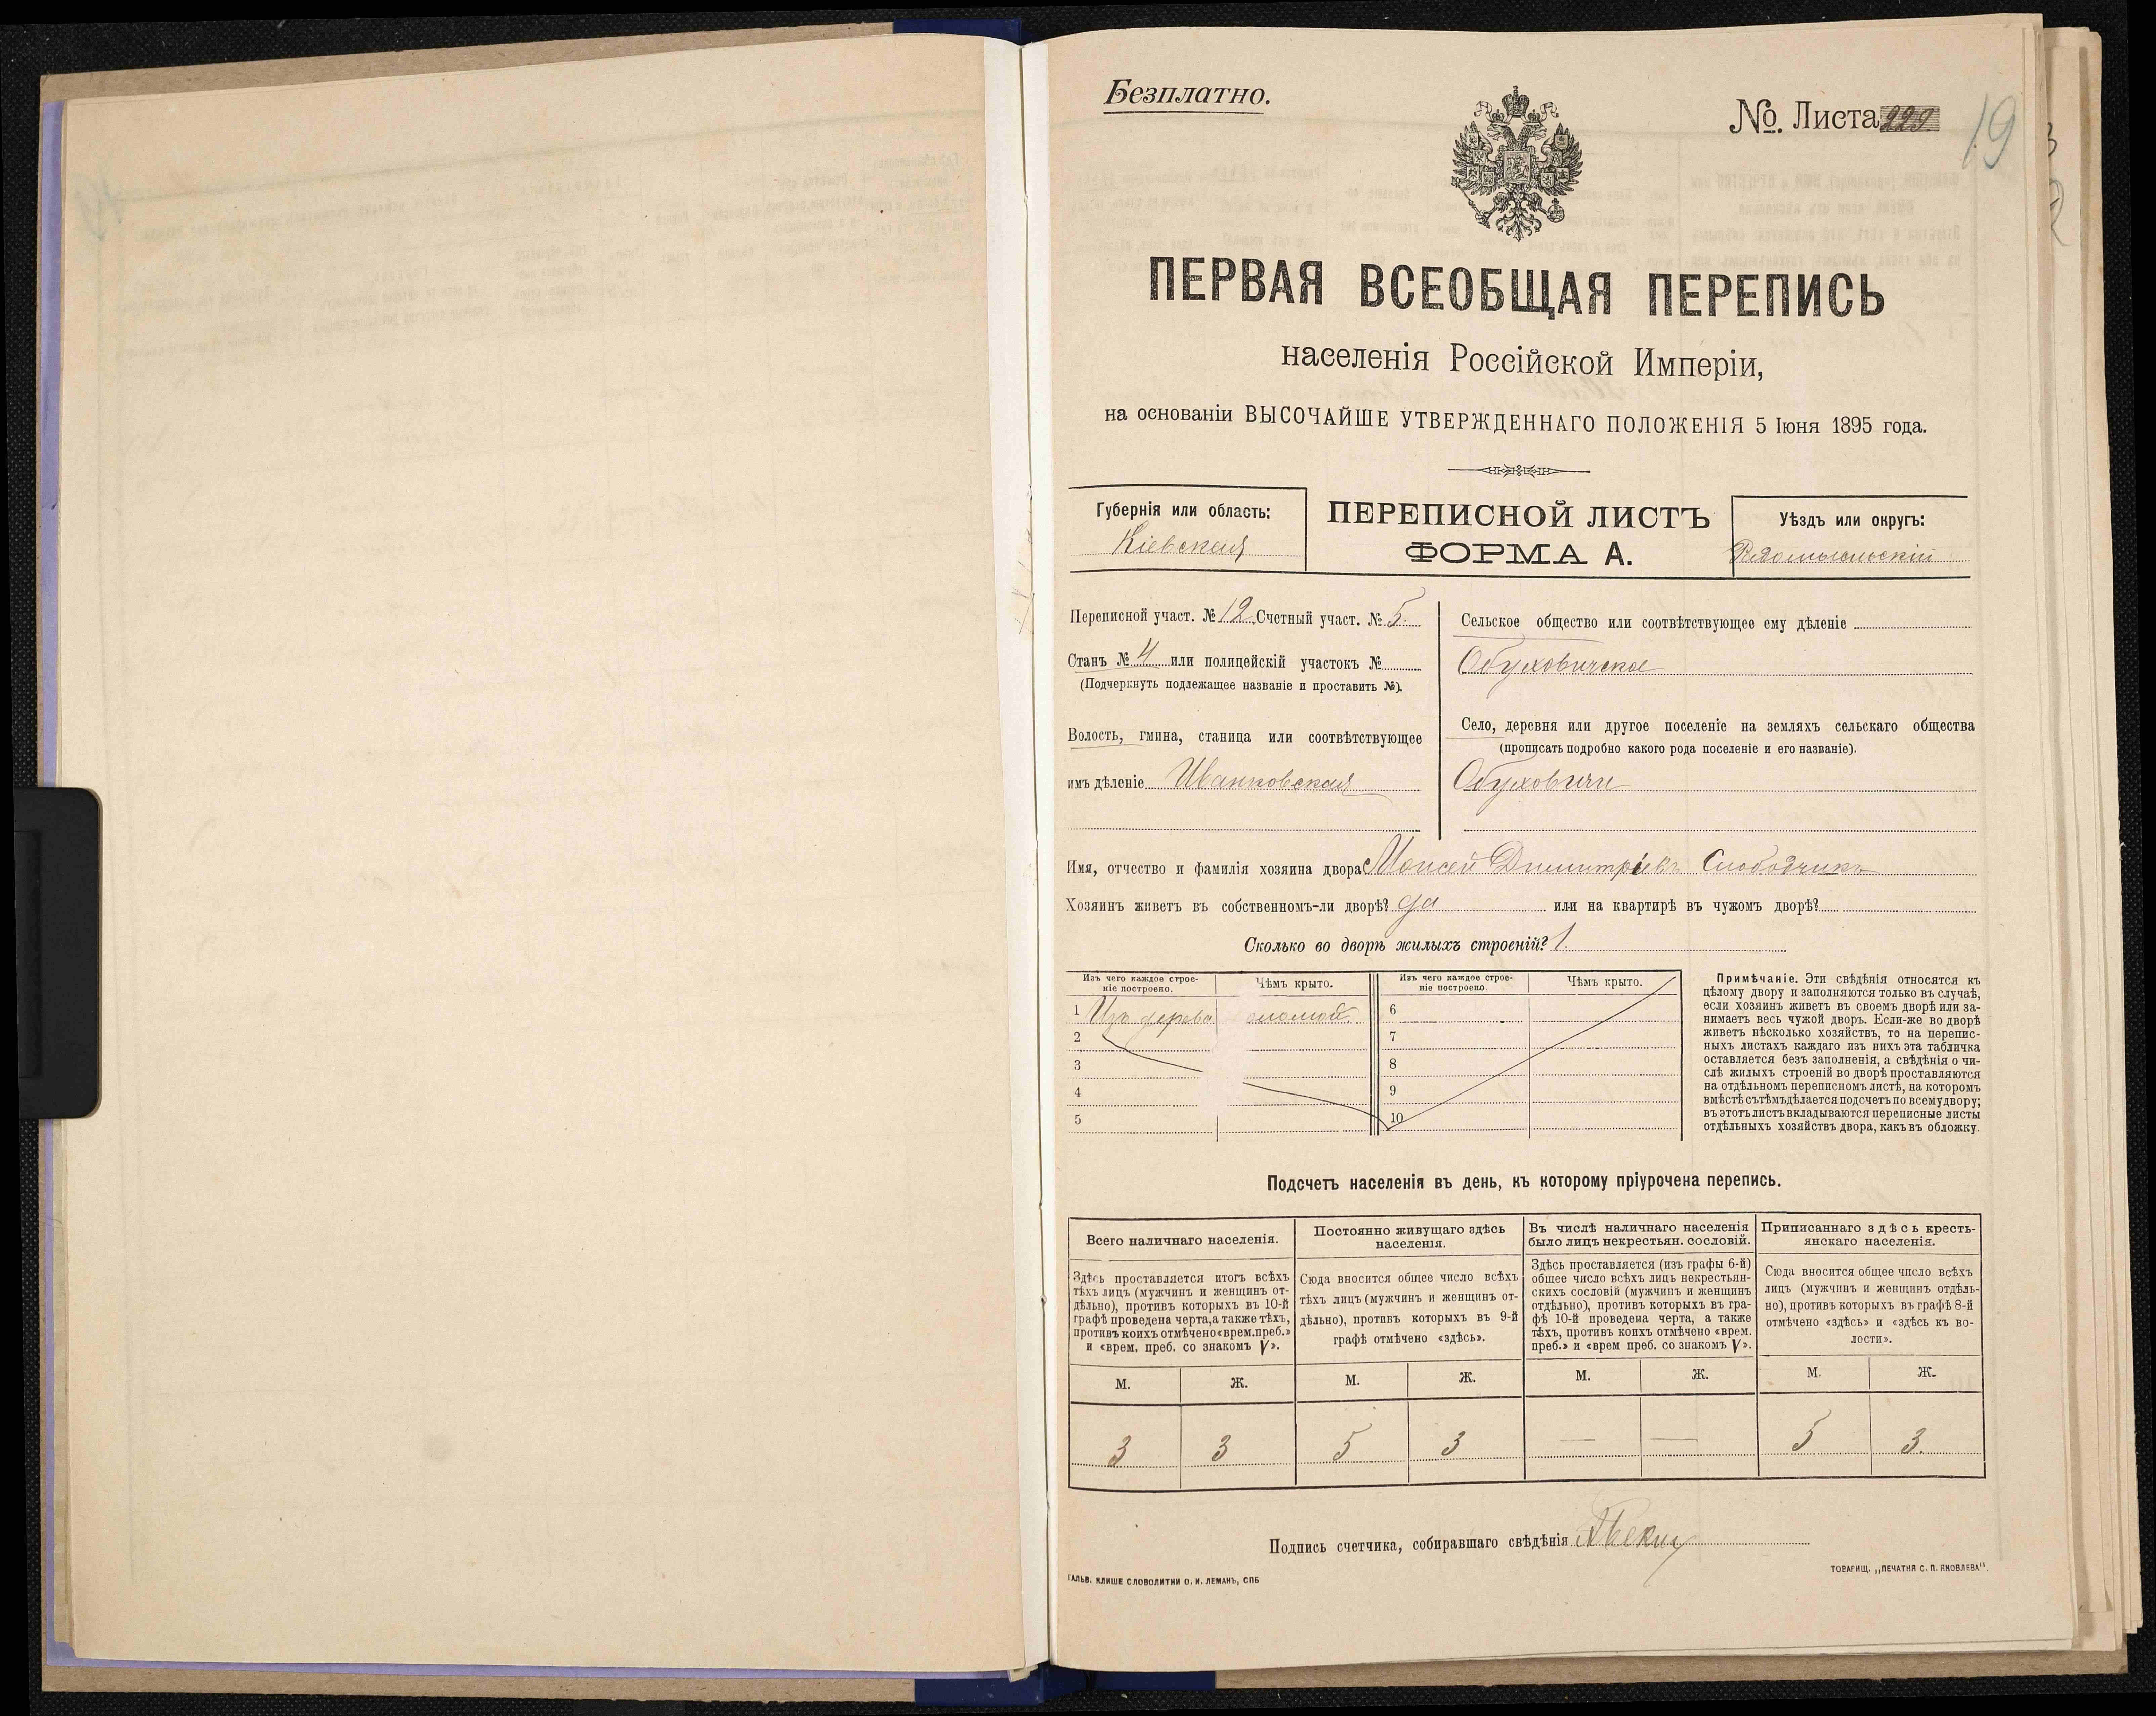 Безплатно.
№ Листа 229.
19
ПЕРВАЯ ВСЕОБЩАЯ ПЕРЕПИСЬ
населенія Россійской Имперіи,
на основаніи ВЫСОЧАЙШЕ УТВЕРЖДЕННАГО ПОЛОЖЕНІЯ 5 Іюня 1895 года.
Губернія или область:
Кіевская
ПЕРЕПИСНОЙ ЛИСТЪ
ФОРМА А.
Уѣздъ или округъ:
Радомысльскій
Переписной участ. № 12 Счетный участ. № 5.
Станъ № 4 или полицейскій участокъ №
(Подчеркнуть подлежащее названіе и проставить №).
Волость, гмина, станица или соотвѣтствующее
имъ дѣленіе Иванковская
Сельское общество или соотвѣтствующее ему дѣленіе
Обуховичское
Село, деревня или другое поселеніе на земляхъ сельскаго общества
(прописать подробно какого рода поселеніе и его названіе).
Обуховичи
Имя, отчество и фамилія хозяина двора Моисей Димитріевъ Слободчикъ
Хозяинъ живетъ въ собственномъ-ли дворѣ? да или на квартирѣ въ чужомъ дворѣ?
Сколько во дворѣ жилыхъ строеній? 1.
Изъ чего каждое строе-
ніе построено.
Чѣмъ крыто.
Изъ чего каждое строе-
ніе построено.
Чѣмъ крыто.
1 Изъ дерева соломой 6
2 7
3 8
4 9
5 10
Примѣчаніе. Эти свѣдѣнія относятся къ
цѣлому двору и заполняются только въ случаѣ,
если хозяинъ живетъ въ своемъ дворѣ или за-
нимаетъ весь чужой дворъ. Если-же во дворѣ
живетъ нѣсколько хозяйствъ, то на перепис-
ныхъ листахъ каждаго изъ нихъ эта табличка
оставляется безъ заполненія, а свѣдѣнія о чи-
слѣ жилыхъ строеній во дворѣ проставляются
на отдѣльномъ переписномъ листѣ, на которомъ
вмѣстѣ съ тѣмъ дѣлается подсчетъ по всему двору;
въ этотъ листъ вкладываются переписные листы
отдѣльныхъ хозяйствъ двора, какъ въ обложку.
Подсчетъ населенія въ день, къ которому пріурочена перепись.
Всего наличнаго населенія.
Здѣсь проставляется итогъ всѣхъ
тѣхъ лицъ (мужчинъ и женщинъ от-
дѣльно), противъ которыхъ въ 10-й
графѣ проведена черта, а также тѣхъ,
противъ коихъ отмѣчено «врем. преб.»
и «врем. преб. со знакомъ V».
Постоянно живущаго здѣсь
населенія.
Сюда вносится общее число всѣхъ
тѣхъ лицъ (мужчинъ и женщинъ от-
дѣльно), противъ которыхъ въ 9-й
графѣ отмѣчено «здѣсь».
Въ числѣ наличнаго населенія
было лицъ некрестьян. сословій.
Здѣсь проставляется (изъ графы 6-й)
общее число всѣхъ лицъ некрестьян-
скихъ сословій (мужчинъ и женщинъ
отдѣльно), противъ которыхъ въ гра-
фѣ 10-й проведена черта, а также
тѣхъ, противъ коихъ отмѣчено «врем.
преб.» и «врем преб. со знакомъ V».
Приписаннаго здѣсь кресть-
янскаго населенія.
Сюда вносится общее число всѣхъ
лицъ (мужчинъ и женщинъ отдѣль-
но), противъ которыхъ въ графѣ 8-й
отмѣчено «здѣсь» и «здѣсь къ во-
лости».
М. Ж. М. Ж. М. Ж. М. Ж.
3 3 5 3 — — 5 3.
Подпись счетчика, собиравшаго свѣдѣнія
ГАЛЬВ. КЛИШЕ СЛОВОЛИТНИ О. И. ЛЕМАНЪ, СПБ
ТОВАРИЩ. „ПЕЧАТНЯ С. П. ЯКОВЛЕВА".